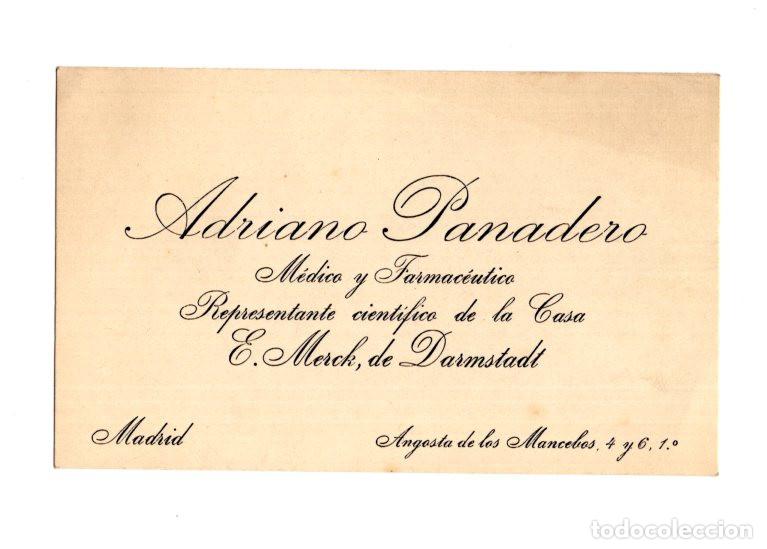 Adriano Panadero
Médico y Farmacéutico
Representante científico de la Casa
E. Merck, de Darmstadt
Madrid
Angosta de los Mancebos, 4 y 6, 1.º
todocoleccion